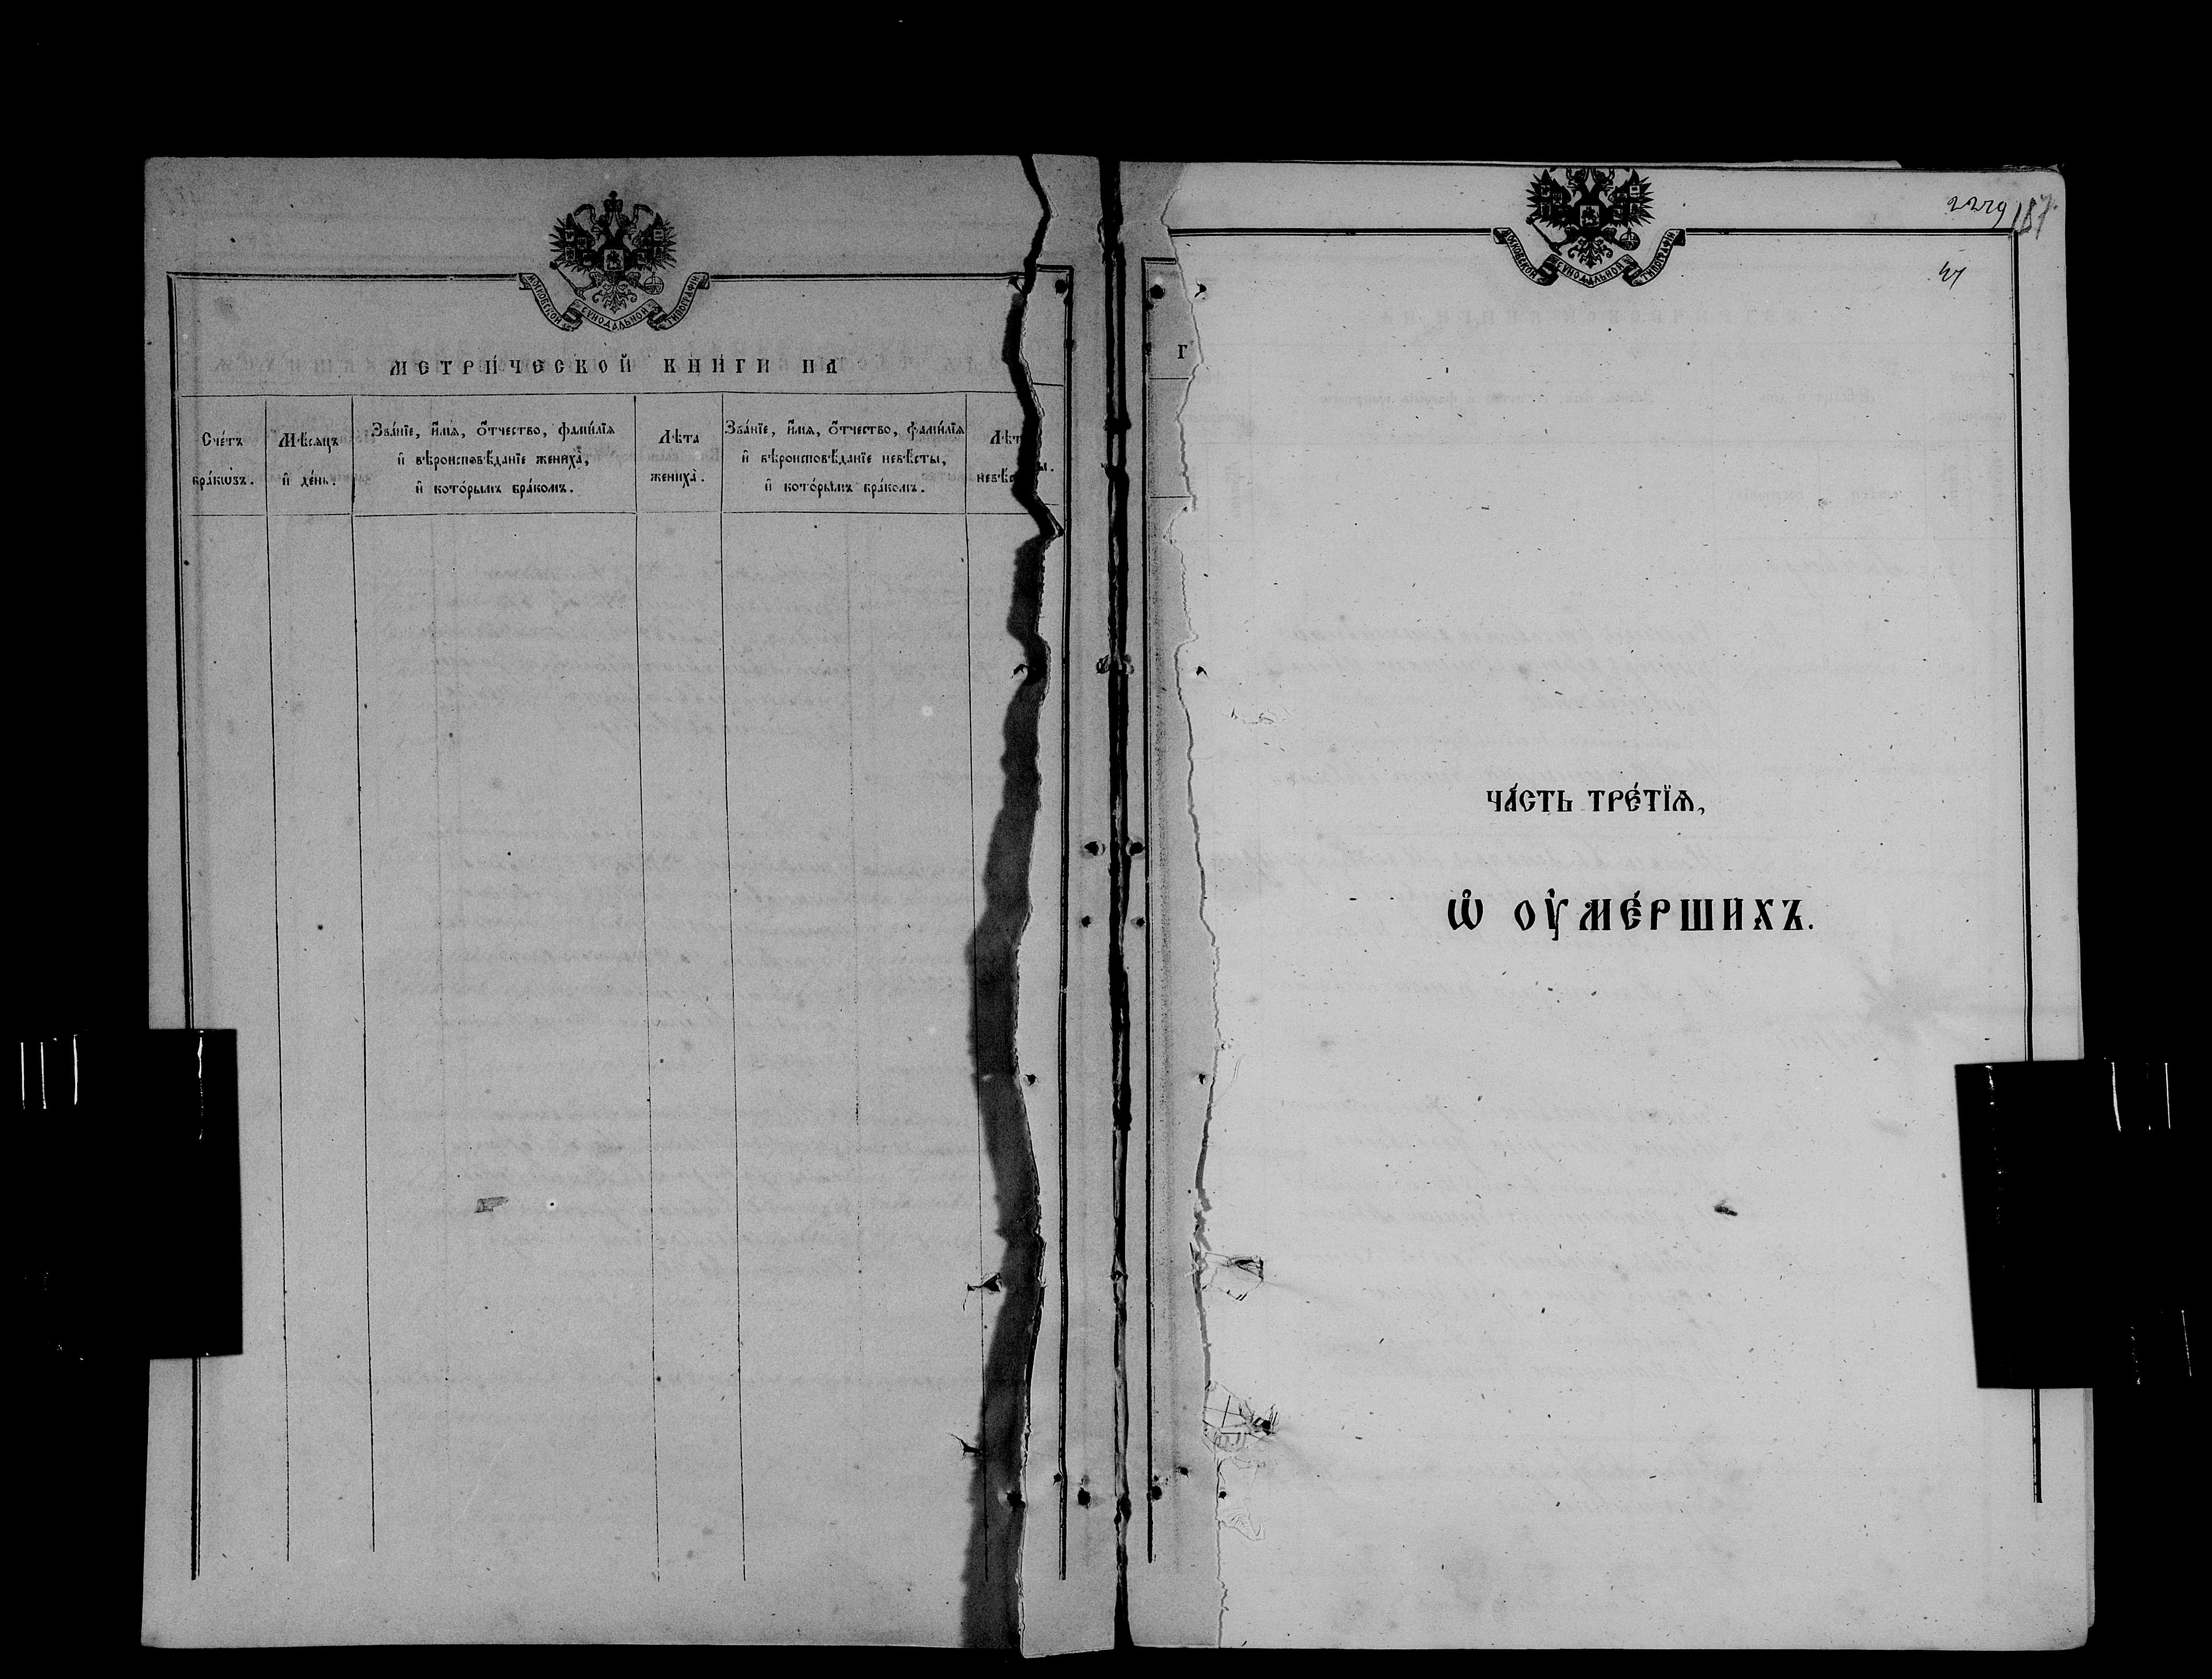 МОСКОВСКОЙ СѴНОДАЛЬНОЙ ТИПОГРАФІИ
МЕТРИ́ЧЕСКОЙ КНИ́ГИ НА
Сче́тъ
бра́кѡвъ.
Мѣ́сяцъ
и҆ де́нь.
Зва́нїе, и҆́мѧ, ѻ҆́тчество, фами́лїѧ
и҆ вѣроисповѣ́данїе жениха̀,
и҆ кото́рымъ бра́комъ.
Лѣ́та
жениха̀.
Зва́нїе, и҆́мѧ, ѻ҆́тчество, фами́лїѧ
и҆ вѣроисповѣ́данїе невѣ́сты,
и҆ кото́рымъ бра́комъ.
Лѣ́т
невѣ́с
ы.
Г
МОСКОВСКОЙ СѴНОДАЛЬНОЙ ТИПОГРАФІИ
187
ЧА́СТЬ ТРЕ́ТЇѦ,
Ѡ҆ ОУ҆МЕ́РШИХЪ.